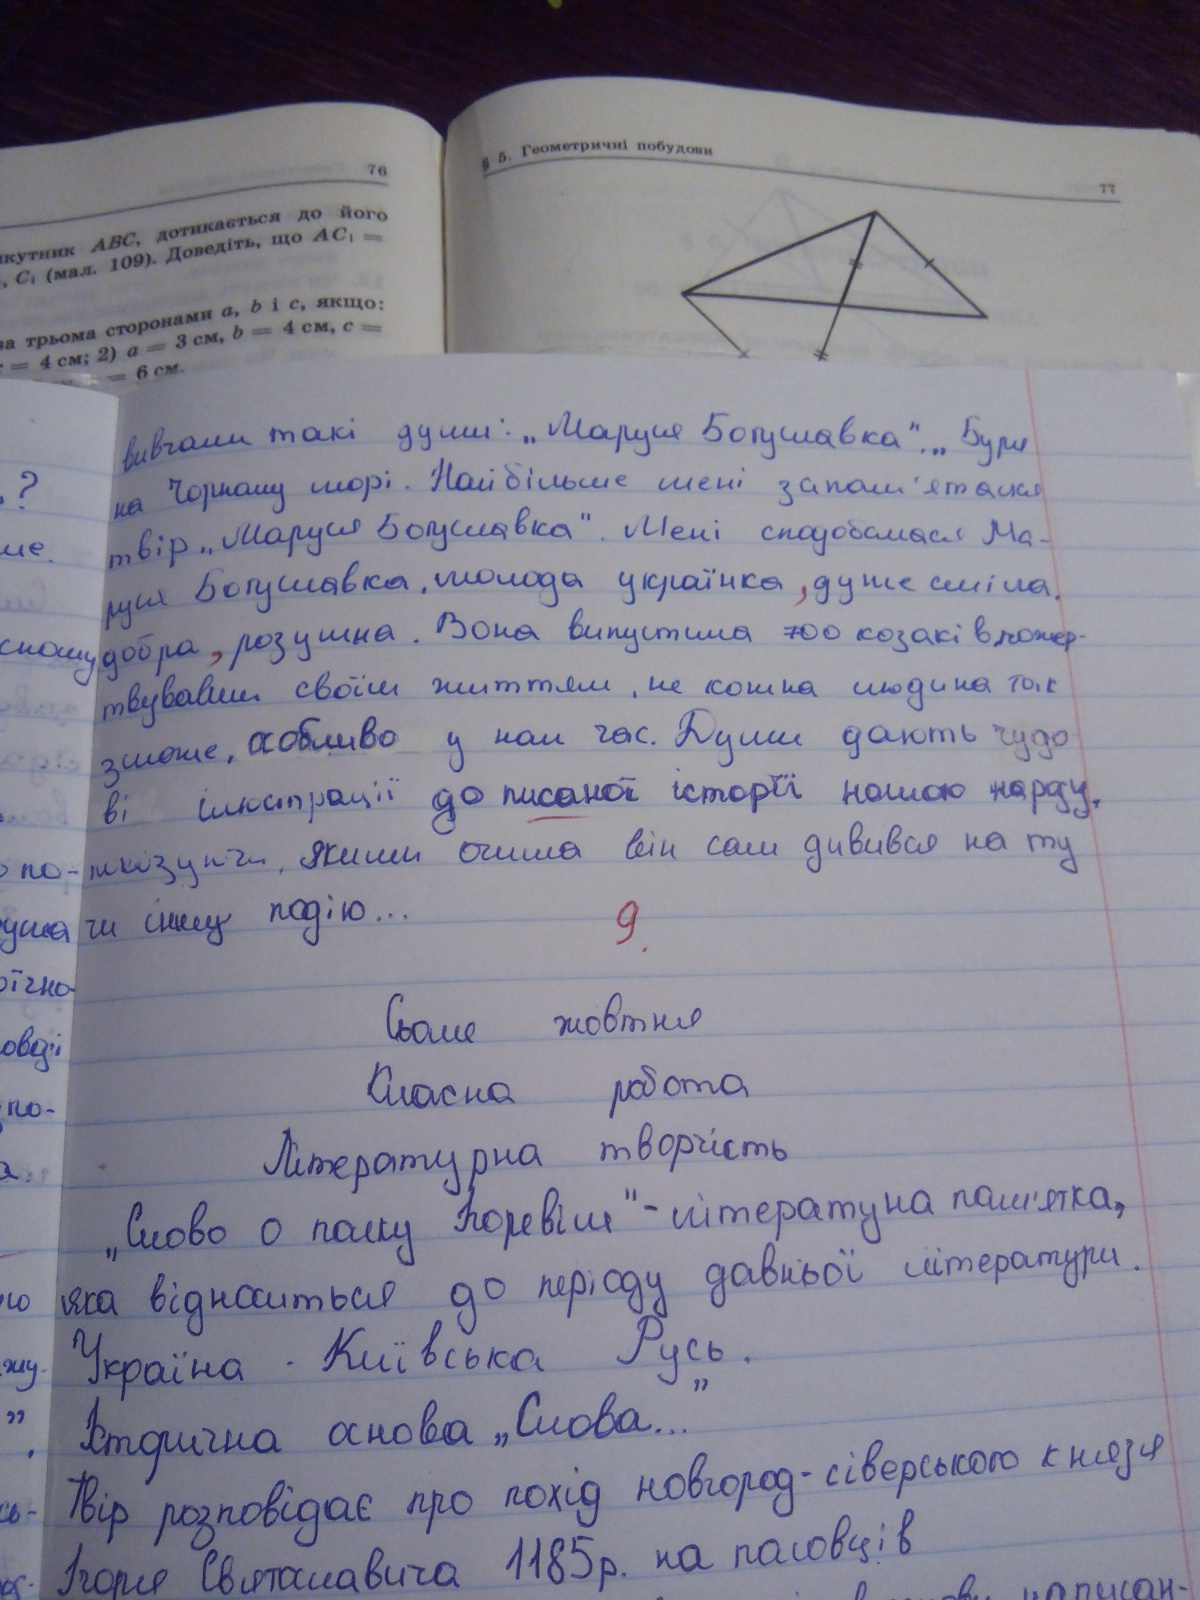 76
кутник ABC, дотикається до його
, C₁ (мал. 109). Доведіть, що AC₁ =
за трьома сторонами a, b і c, якщо:
= 4 см; 2) a = 3 см, b = 4 см, c =
= 6 см.
§ 5. Геометричні побудови
77
вивчали такі думи: „Маруся Богуславка". „Буря
на Чорному морі. Найбільше мені запам'ятався
твір „Маруся Богуславка". Мені сподобалася Ма-
руся Богуславка, молода українка, дуже сміла,
добра, розумна. Вона випустила 700 козаків пожер-
твувавши своїм життям, не кожна людина так
зможе, особливо у наш час. Думи дають чудо
ві ілюстрації до писаної історії нашою народу,
показуючи, якими очима він сам дивився на ту
чи іншу подію...
9.
Сьоме жовтня
Класна робота
Літературна творчість
„Слово о полку Ігоревім" - літературна пам'ятка,
яка відноситься до періоду давньої літератури.
Україна - Київська Русь.
Історична основа „Слова..."
Твір розповідає про похід новгород-сіверського князя
Ігоря Святославича 1185р. на половців
написан-
?
ме.
сному
по-
ума
оїчно-
овці
по-
а.
го
му-
”.
сь-